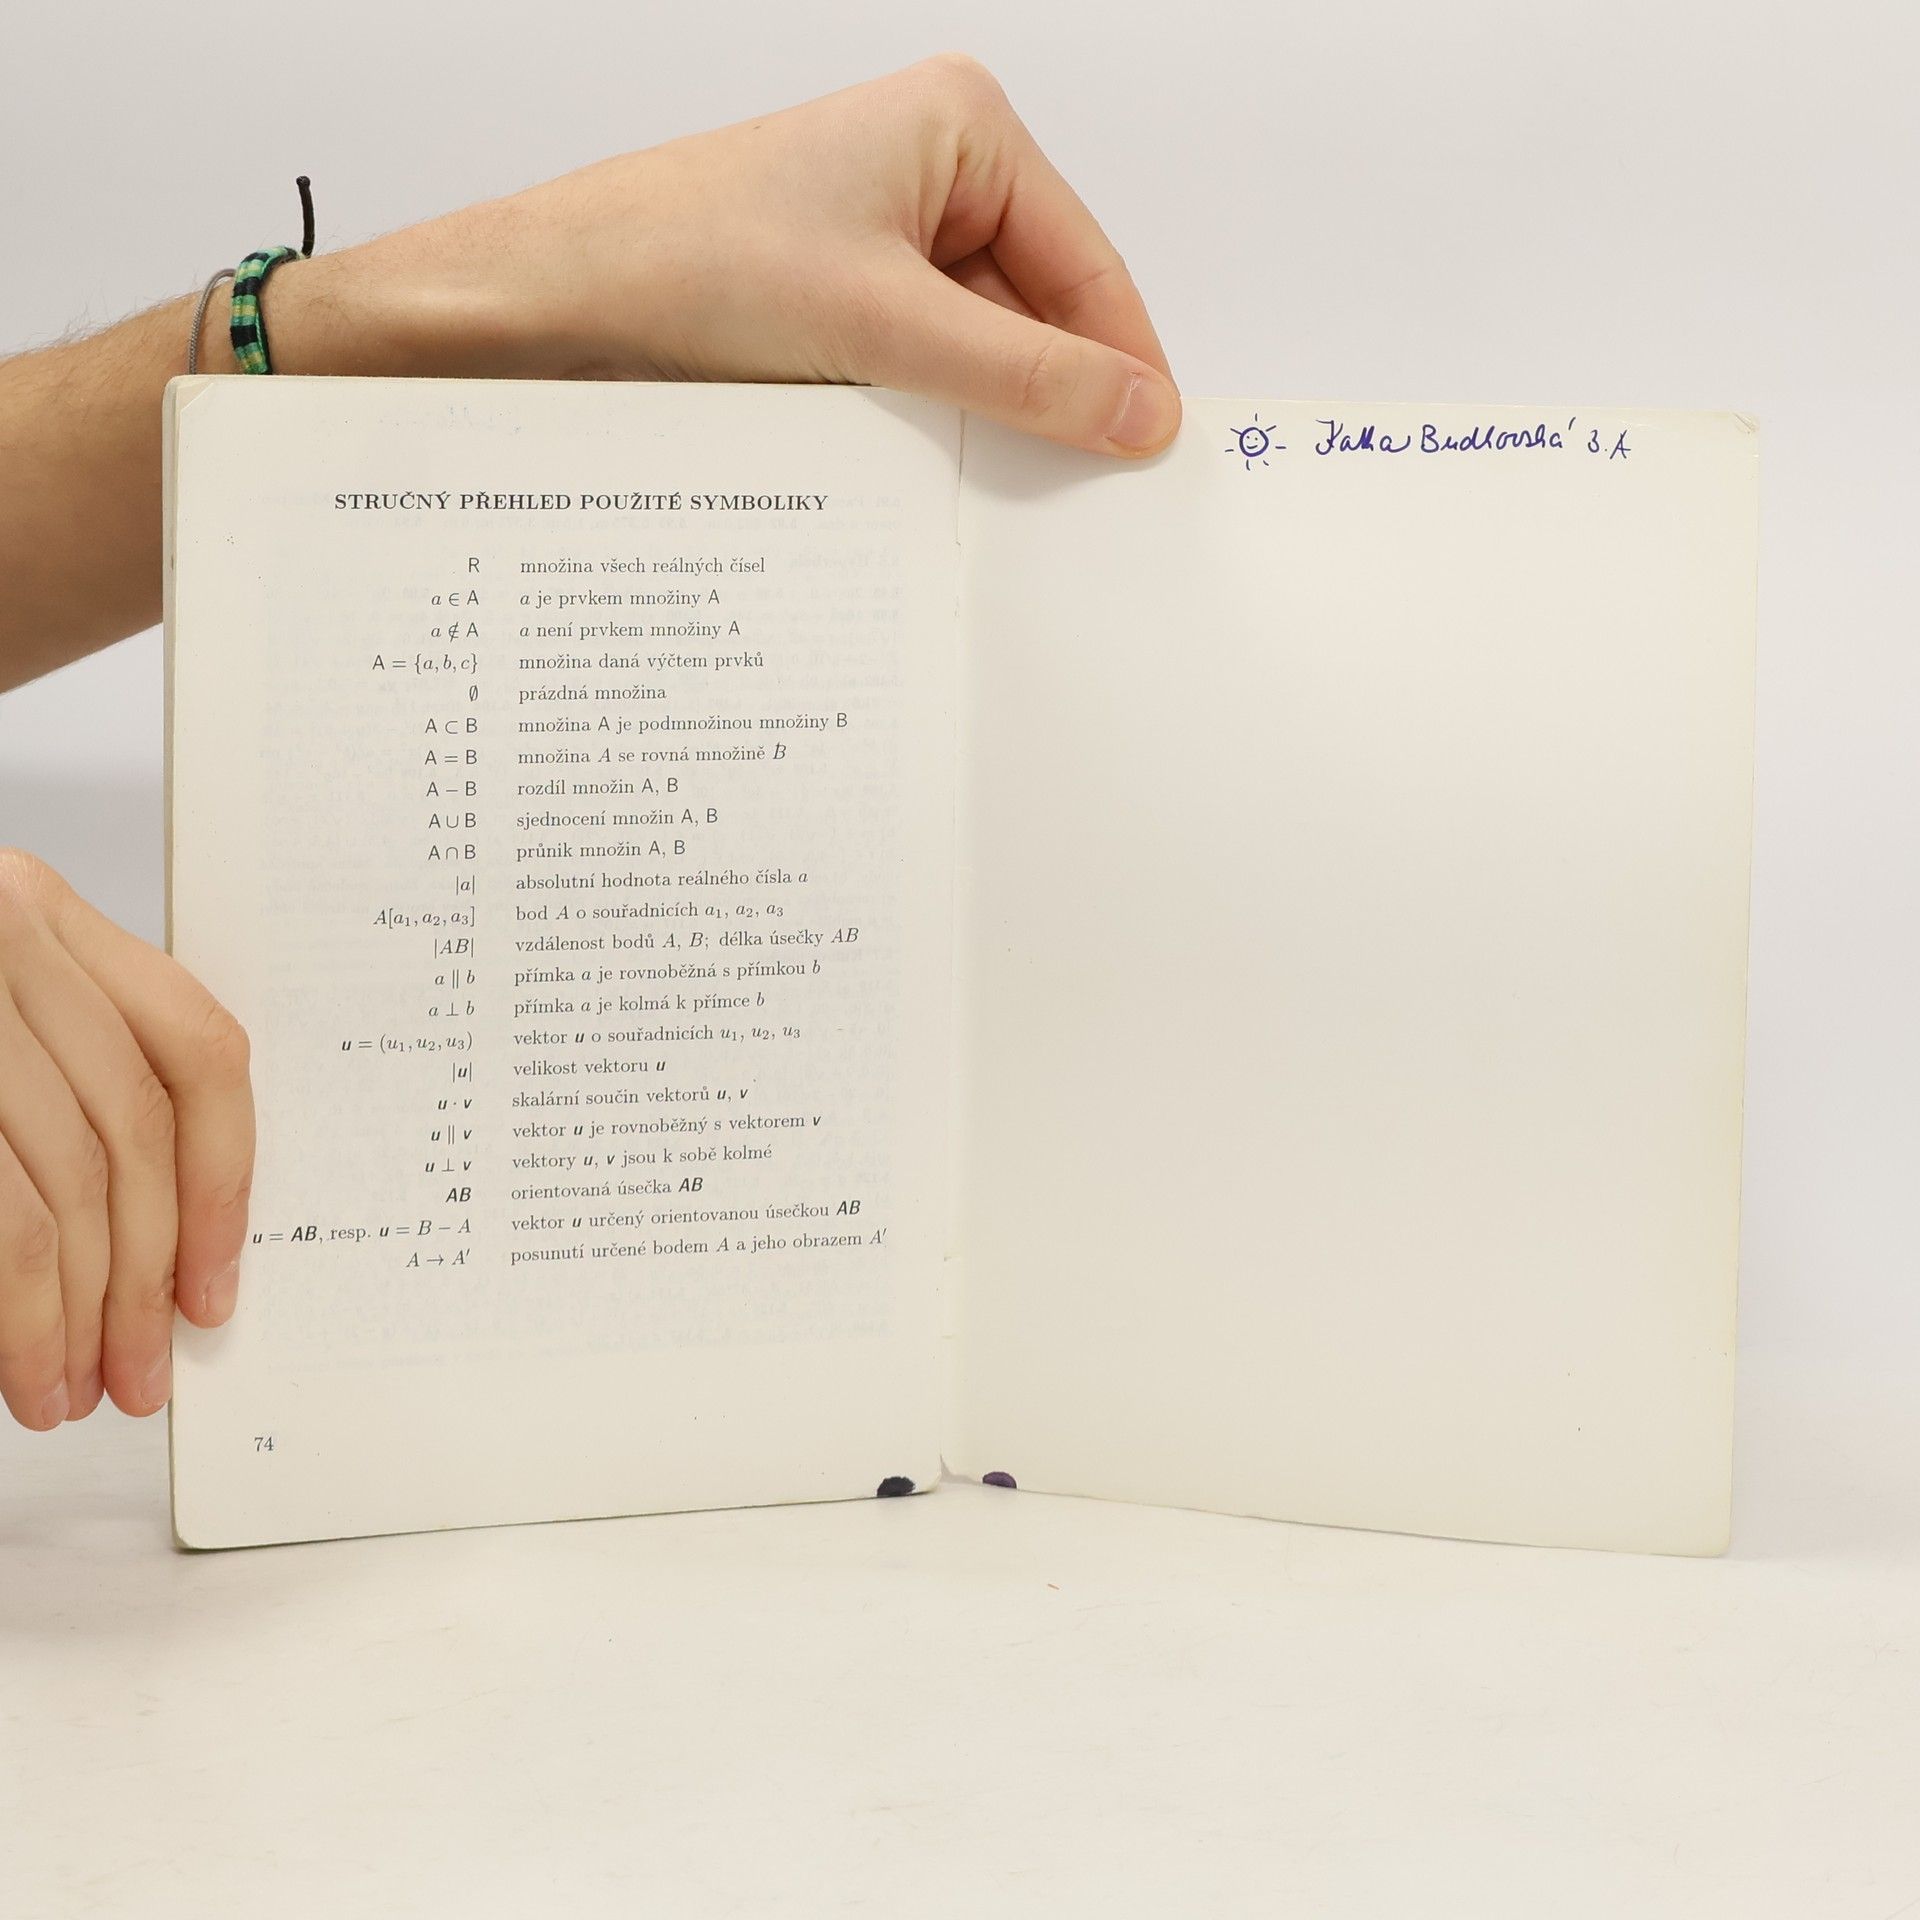 STRUČNÝ PŘEHLED POUŽITÉ SYMBOLIKY
R množina všech reálných čísel
a ∈ A a je prvkem množiny A
a ∉ A a není prvkem množiny A
A = {a, b, c} množina daná výčtem prvků
∅ prázdná množina
A ⊂ B množina A je podmnožinou množiny B
A = B množina A se rovná množině B
A − B rozdíl množin A, B
A ∪ B sjednocení množin A, B
A ∩ B průnik množin A, B
|a| absolutní hodnota reálného čísla a
A[a₁, a₂, a₃] bod A o souřadnicích a₁, a₂, a₃
|AB| vzdálenost bodů A, B; délka úsečky AB
a ∥ b přímka a je rovnoběžná s přímkou b
a ⊥ b přímka a je kolmá k přímce b
u = (u₁, u₂, u₃) vektor u o souřadnicích u₁, u₂, u₃
|u| velikost vektoru u
u · v skalární součin vektorů u, v
u ∥ v vektor u je rovnoběžný s vektorem v
u ⊥ v vektory u, v jsou k sobě kolmé
AB orientovaná úsečka AB
u = AB, resp. u = B − A vektor u určený orientovanou úsečkou AB
A → A′ posunutí určené bodem A a jeho obrazem A′
74
Katka 3.A